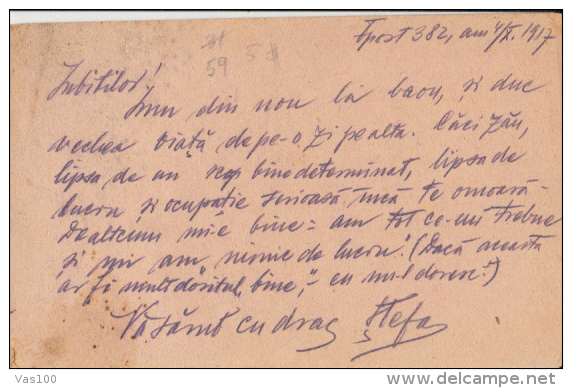 Fpost 382, am 4/X. 1917
31
59 5 f
Iubiților!
Sunt din nou la baon, și duc
vechea viață de pe-o zi pe alta. Căci zău,
lipsa de un scop bine determinat, lipsa de
lucru și ocupație serioasă, încă te omoară.
De altcum mi-e bine = am tot ce-mi trebue
și nu am „nimic de lucru“. (Dacă aceasta
ar fi mult doritul „bine“, – eu nu-l doresc!)
Vă sărut cu drag Ștefa
Vas100
delcampe.net